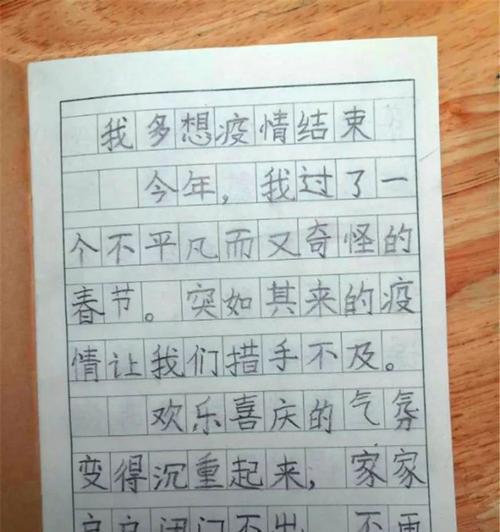 我多想疫情结束
今年，我过了一
个不平凡而又奇怪的
春节。突如其来的疫
情让我们措手不及。
欢乐喜庆的气氛
变得沉重起来，家家
户户闭门不出，不再